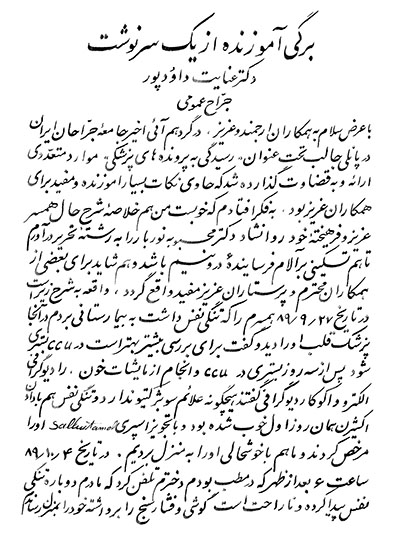 برگی آموزنده از یک سرنوشت
دکتر عنایت داودپور
جراح عمومی
با عرض سلام به همکاران ارجمند و عزیز، در گردهم آئی اخیر جامعه جراحان ایران
در پانلی جالب تحت عنوان، رسیدگی به پرونده های پزشکی، موارد متعددی
ارائه و به قضاوت گذارده شد که حاوی نکات بسیار آموزنده و مفید برای
همکاران عزیز بود. به فکر افتادم که خوبست من هم خلاصه شرح حال همسر
عزیز و فرهیخته خود روانشاد دکتر محبوبه نوربار را به رشته تحریر درآورم
تا هم تسکینی بر آلام فرساینده درونیم باشد و هم شاید برای بعضی از
همکاران محترم و پرستاران عزیز مفید واقع گردد، واقعه به شرح زیر است
در تاریخ ۸۹/۹/۲۷ همسرم را که تنگی نفس داشت به بیمارستانی بردم در آنجا
پزشک قلب او را دید و گفت برای بررسی بیشتر بهتر است در ccu بستری
شود پس از سه روز بستری در ccu و انجام آزمایشات خون، رادیوگرافی
الکترو واکوکاردیوگرافی گفتند هیچگونه علائم سوئی رؤیت نشد و تنگی نفس هم با دادن
اکسیژن همان روز اول خوب شده بود و با تجویز اسپری Salbutamol او را
مرخص کردند و ما هم با خوشحالی او را به منزل بردیم. در تاریخ ۸۹/۱۰/۴
ساعت ۶ بعد از ظهر که در مطب بودم دخترم تلفن کرد که مادرم دوباره تنگی
نفس پیدا کرده و ناراحت است گوشی و فشار سنج را برداشته خود را بمنزل رساندم